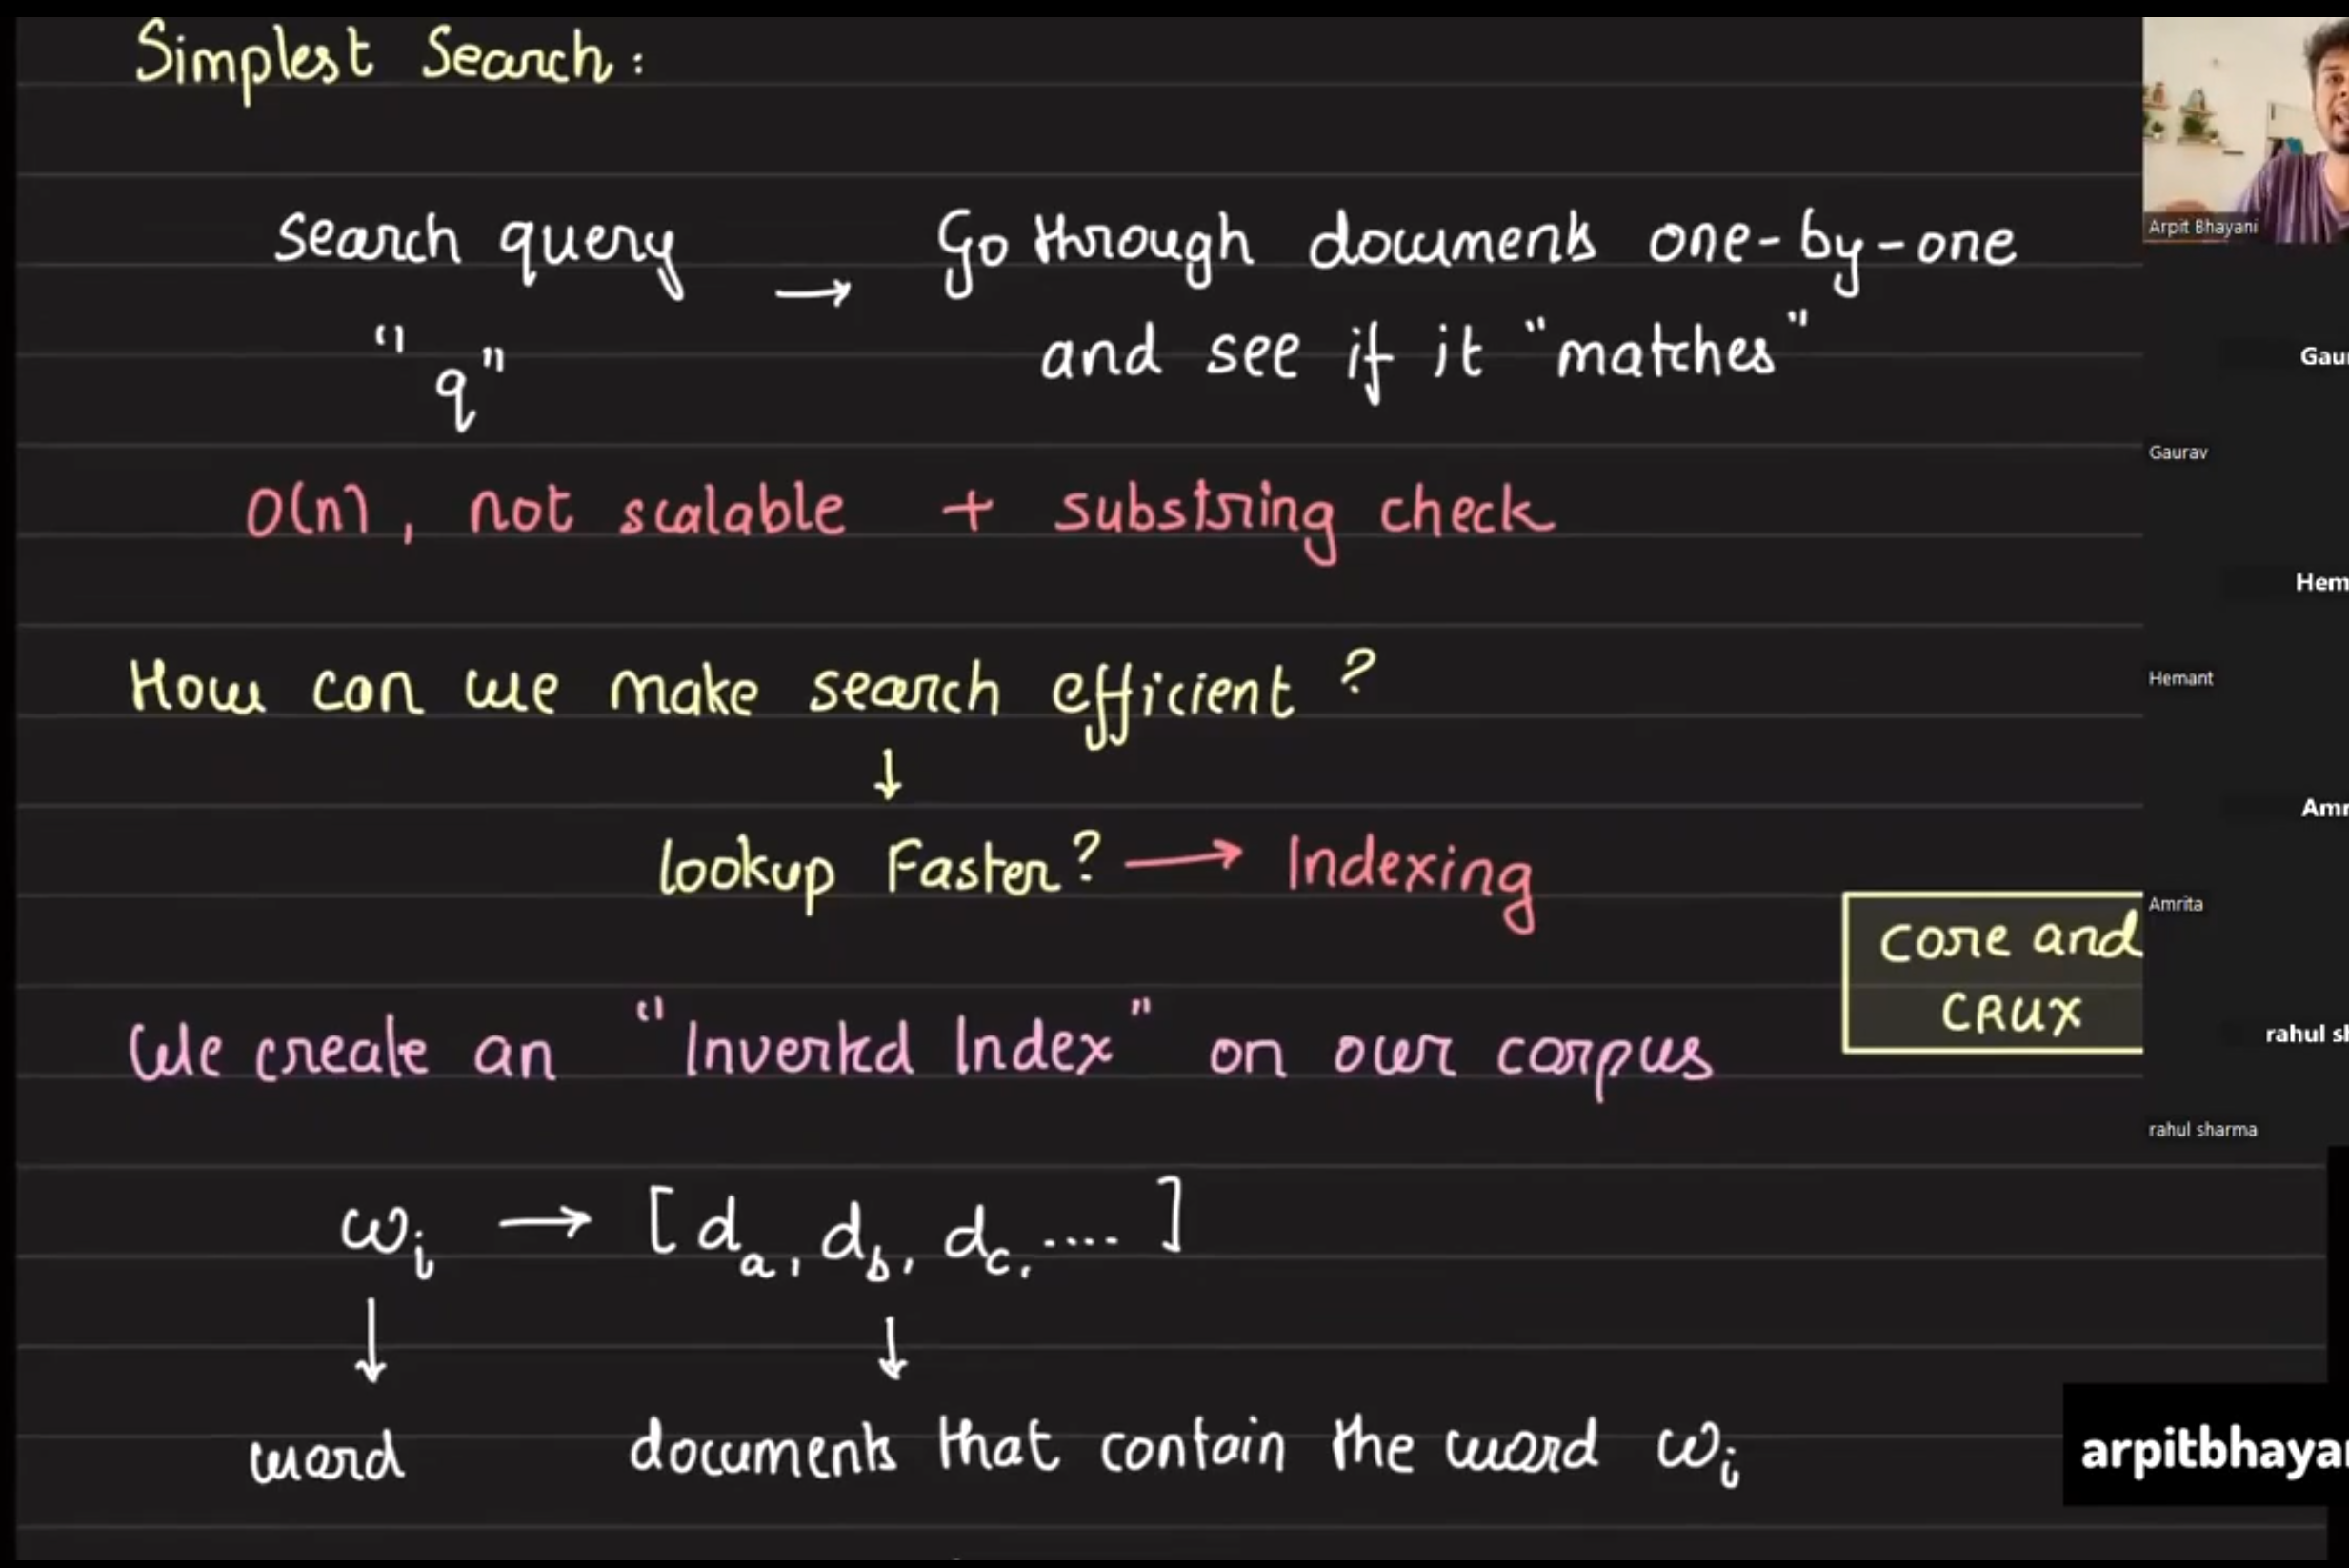 Simplest Search:
search query → Go through documents one-by-one
"q" and see if it "matches"
O(n), not scalable + substring check
How can we make search efficient?
↓
lookup Faster? → Indexing
core and
CRUX
We create an "Inverted Index" on our corpus
wᵢ → [d_a, d_b, d_c, ....]
↓ ↓
word documents that contain the word wᵢ
Arpit Bhayani
Gaurav
Hem
Hemant
Amrita
rahul sharma
arpitbhaya